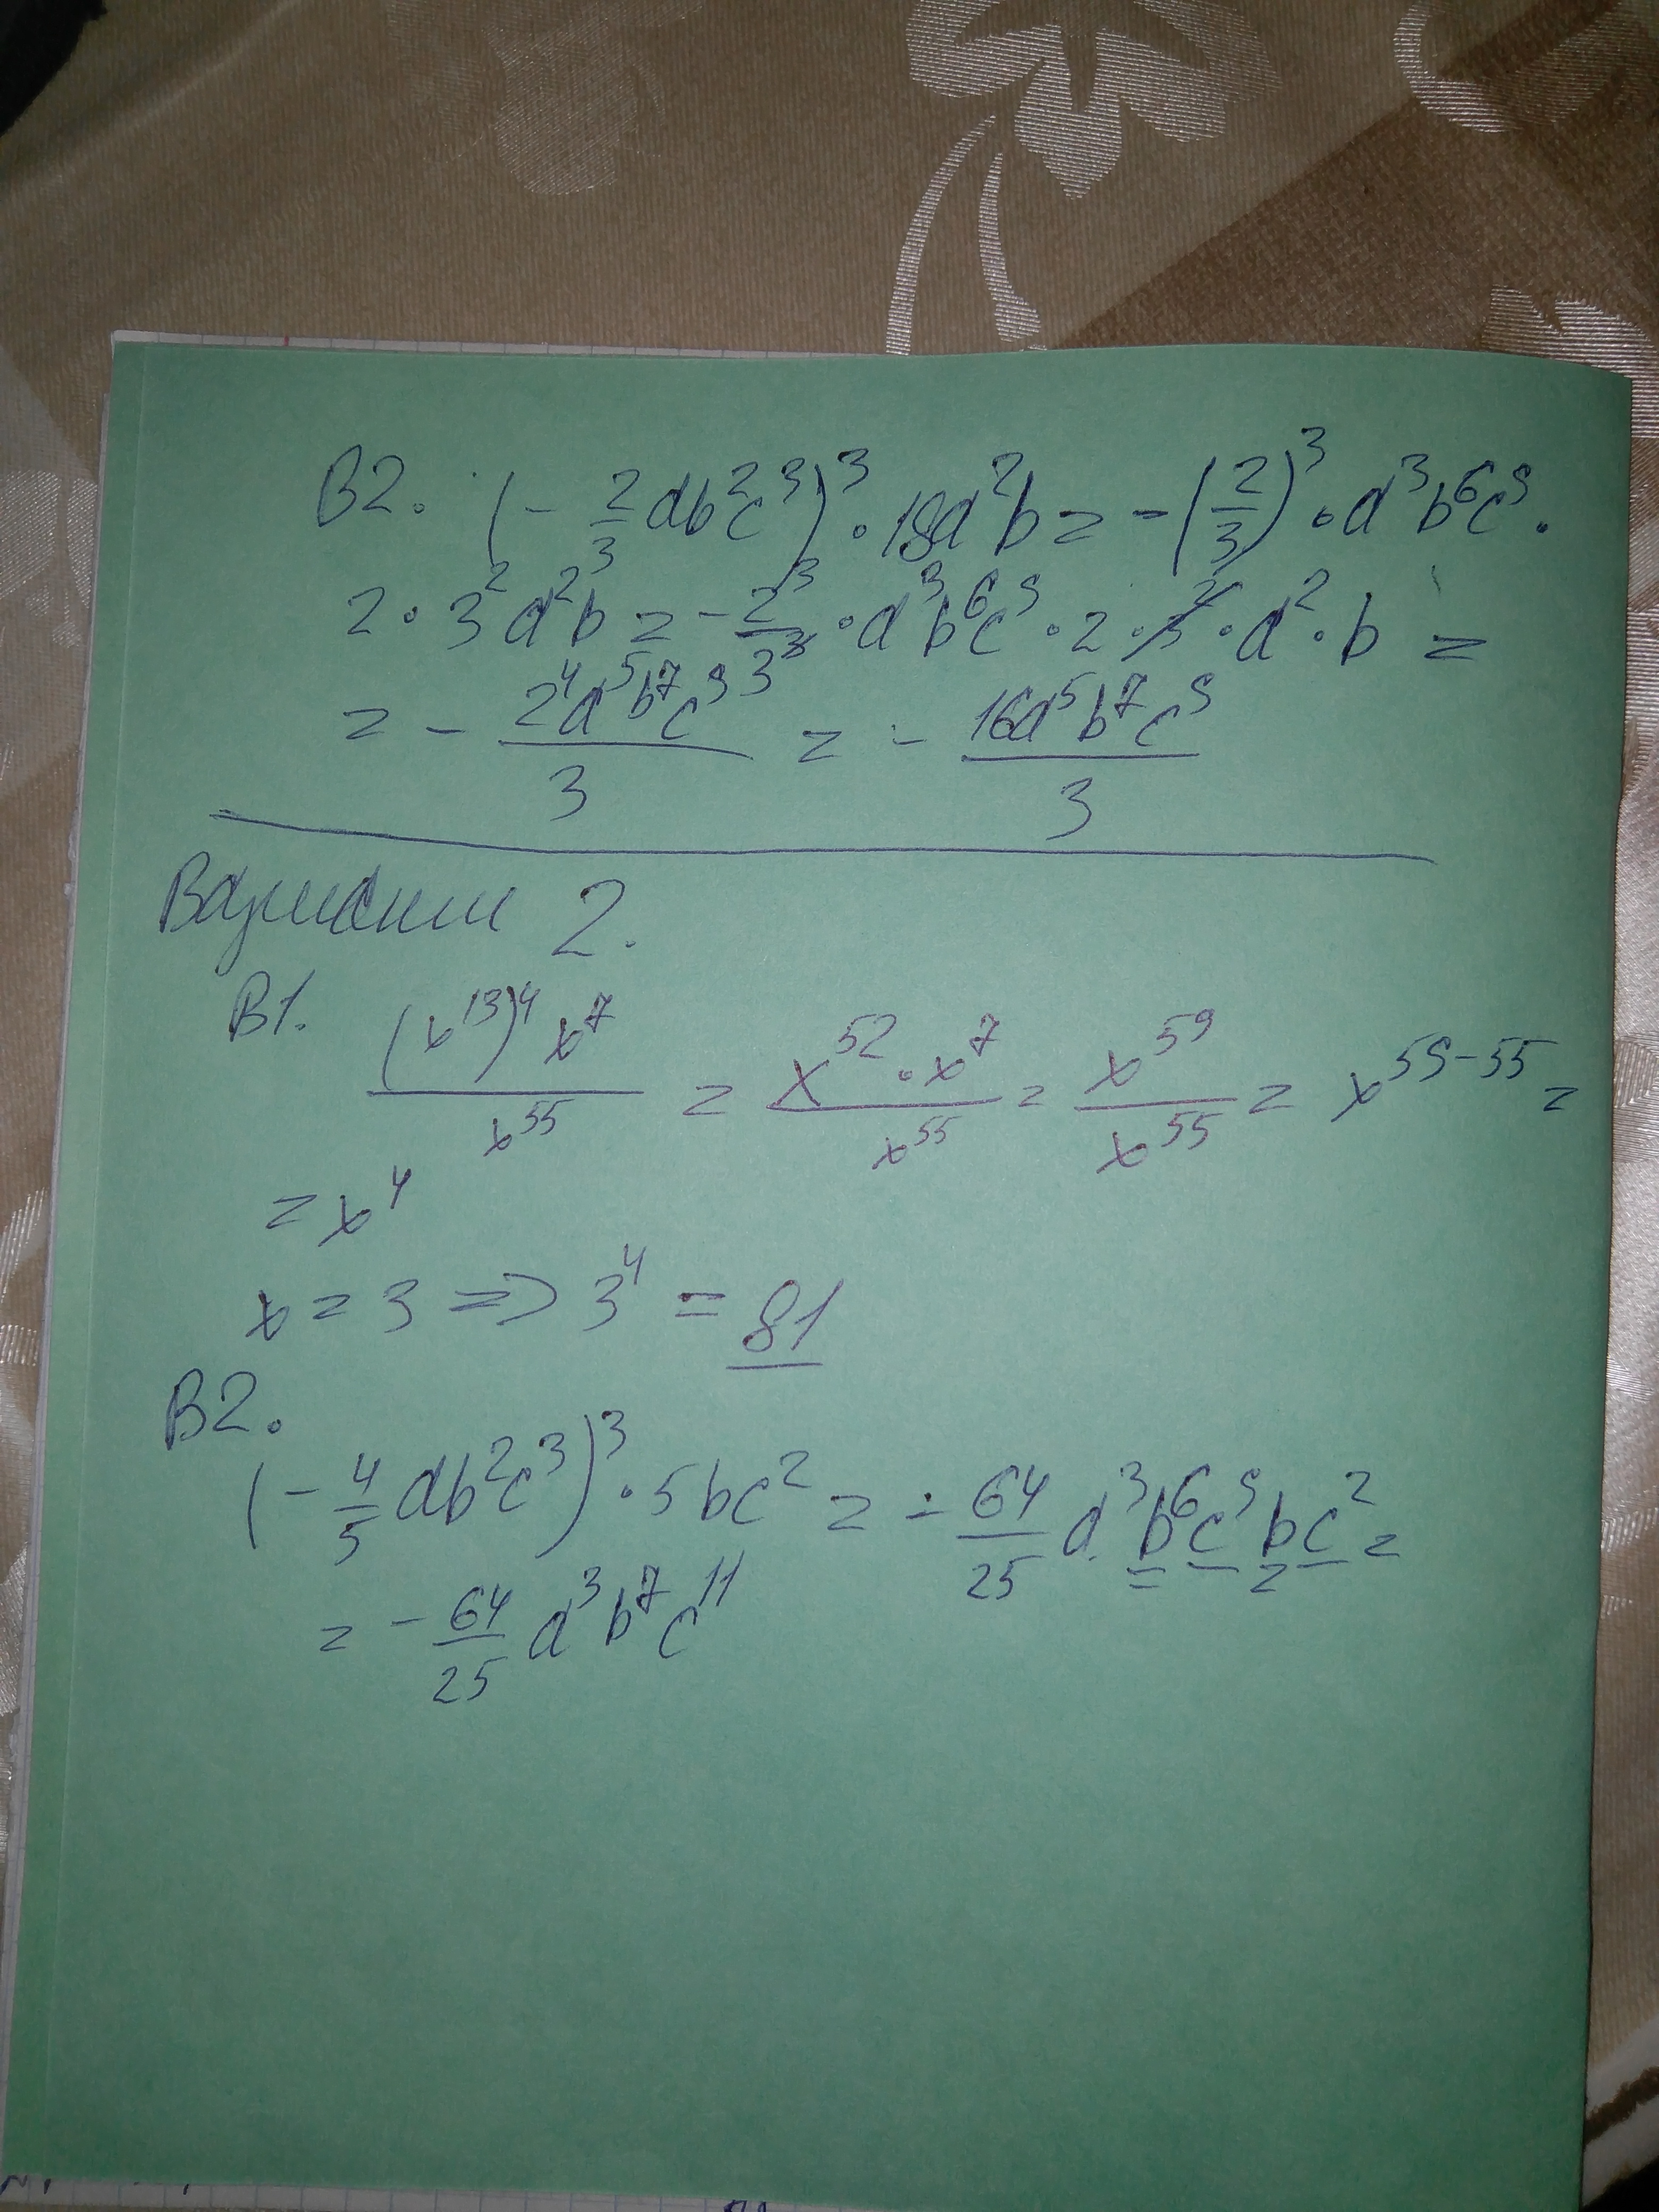 В2. (-2/3 ab²c³)³ · 18a²b = -(2/3)³ · a³b⁶c⁹ ·
2 · 3² a²b = -2³/3³ · a³b⁶c⁹ · 2 · 3² · a² · b =
= - 2⁴a⁵b⁷c⁹/3 = - 16a⁵b⁷c⁹/3
Вариант 2.
В1. (x¹³)⁴x⁷/x⁵⁵ = x⁵²·x⁷/x⁵⁵ = x⁵⁹/x⁵⁵ = x⁵⁹⁻⁵⁵ =
= x⁴
x = 3 => 3⁴ = 81
В2.
(-4/5 ab²c³)³ · 5bc² = - 64/25 a³b⁶c⁹bc² =
= - 64/25 a³b⁷c¹¹